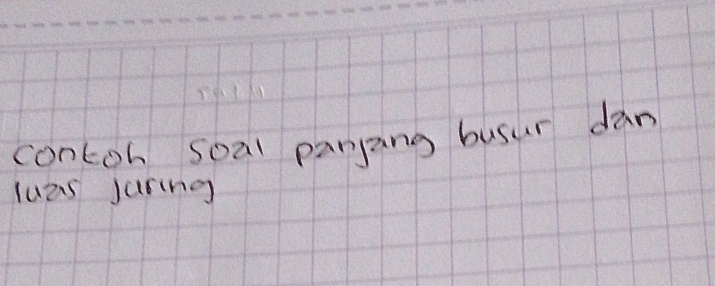 contoh soal panjang busur dan
luas juring